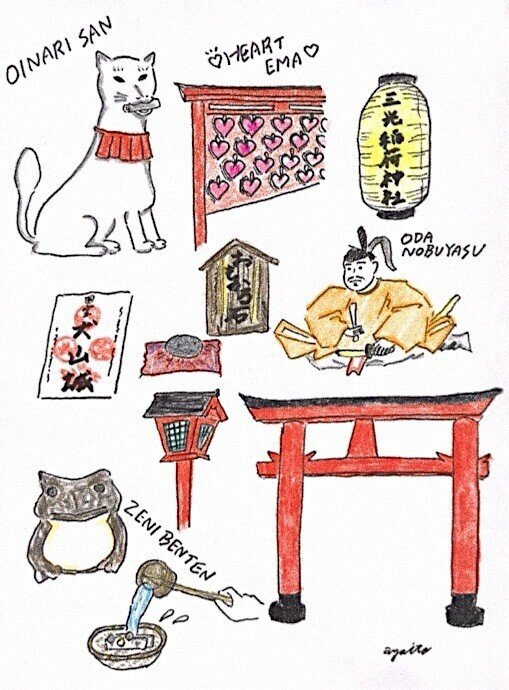 OINARI SAN
♡HEART
EMA♡
三光稲荷神社
ODA
NOBUYASU
おもかる石
犬山城
ZENI BENTEN
ayaito